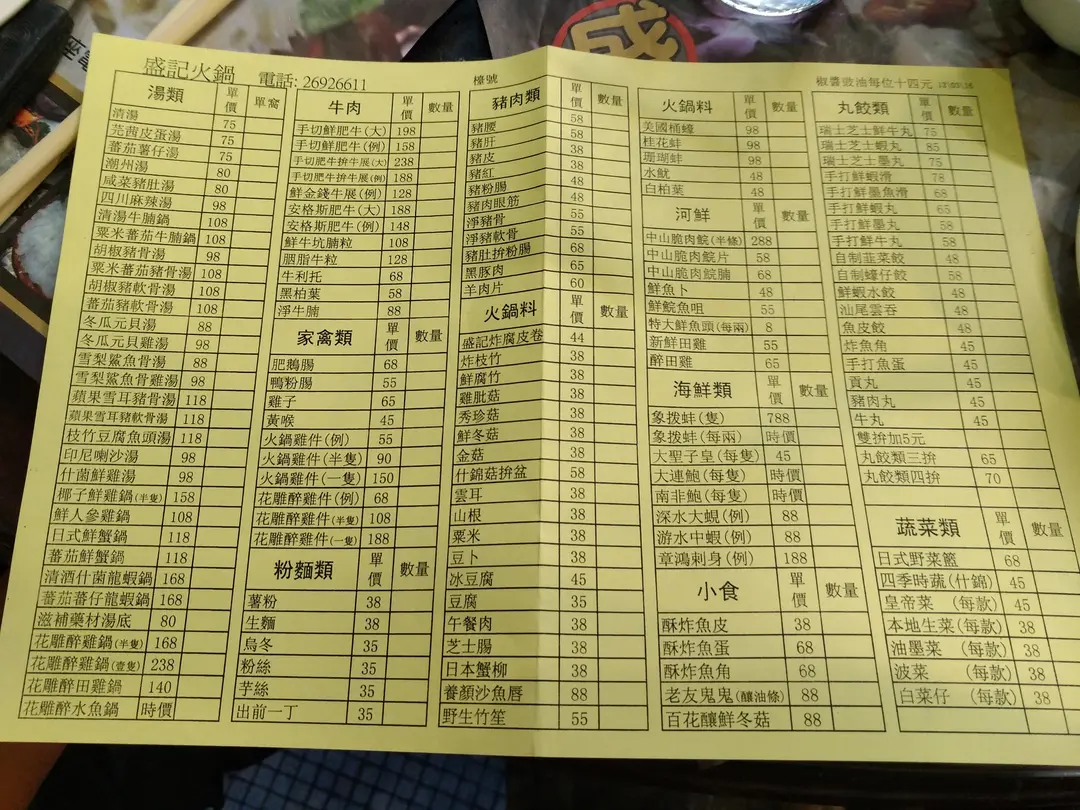 盛記火鍋 電話: 26926611
檯號
椒醬豉油每位十四元
湯類 單價 單窩
清湯 75
芫茜皮蛋湯 75
蕃茄薯仔湯 75
潮州湯 80
咸菜豬肚湯 80
四川麻辣湯 98
清湯牛腩鍋 108
粟米蕃茄牛腩鍋 108
胡椒豬骨湯 98
粟米蕃茄豬骨湯 108
胡椒豬軟骨湯 108
蕃茄豬軟骨湯 108
冬瓜元貝湯 88
冬瓜元貝雞湯 98
雪梨鯊魚骨湯 88
雪梨鯊魚骨雞湯 98
蘋果雪耳豬骨湯 118
蘋果雪耳豬軟骨湯 118
枝竹豆腐魚頭湯 118
印尼喇沙湯 98
什菌鮮雞湯 98
椰子鮮雞鍋(半隻) 158
鮮人參雞鍋 108
日式鮮蟹鍋 118
蕃茄鮮蟹鍋 118
清酒什菌龍蝦鍋 168
蕃茄蕃仔龍蝦鍋 168
滋補藥材湯底 80
花雕醉雞鍋(半隻) 168
花雕醉雞鍋(壹隻) 238
花雕醉田雞鍋 140
花雕醉水魚鍋 時價
牛肉 單價 數量
手切鮮肥牛(大) 198
手切鮮肥牛(例) 158
手切肥牛拚牛展(大) 238
手切肥牛拚牛展(例) 188
鮮金錢牛展(例) 128
安格斯肥牛(大) 188
安格斯肥牛(例) 148
鮮牛坑腩粒 108
胭脂牛粒 128
牛利托 68
黑柏葉 58
淨牛腩 88
家禽類 單價 數量
肥鵝腸 68
鴨粉腸 55
雞子 65
黃喉 45
火鍋雞件(例) 55
火鍋雞件(半隻) 90
火鍋雞件(一隻) 150
花雕醉雞件(例) 68
花雕醉雞件(半隻) 108
花雕醉雞件(一隻) 188
粉麵類 單價 數量
薯粉 38
生麵 38
烏冬 35
粉絲 35
芋絲 35
出前一丁 35
豬肉類 單價 數量
豬腰 58
豬肝 58
豬皮 38
豬紅 38
豬粉腸 48
豬肉眼筋 48
淨豬骨 55
淨豬軟骨 55
豬肚拚粉腸 68
黑豚肉 65
羊肉片 60
火鍋料 單價 數量
盛記炸腐皮卷 44
炸枝竹 38
鮮腐竹 38
雞肶菇 38
秀珍菇 38
鮮冬菇 38
金菇 38
什錦菇拚盆 58
雲耳 38
山根 38
粟米 38
豆卜 38
冰豆腐 45
豆腐 35
午餐肉 38
芝士腸 38
日本蟹柳 38
養顏沙魚唇 88
野生竹笙 55
火鍋料 單價 數量
美國桶蠔 98
桂花蚌 98
珊瑚蚌 98
水魷 48
白柏葉 48
河鮮 單價 數量
中山脆肉鯇(半條) 288
中山脆肉鯇片 58
中山脆肉鯇腩 68
鮮魚卜 48
鮮鯇魚咀 55
特大鮮魚頭(每兩) 8
新鮮田雞 55
醉田雞 65
海鮮類 單價 數量
象拔蚌(隻) 788
象拔蚌(每兩) 時價
大聖子皇(每隻) 45
大連鮑(每隻) 時價
南非鮑(每隻) 時價
深水大蜆(例) 88
游水中蝦(例) 88
章鴻刺身(例) 188
小食 單價 數量
酥炸魚皮 38
酥炸魚蛋 68
酥炸魚角 68
老友鬼鬼(釀油條) 88
百花釀鮮冬菇 88
丸餃類 單價 數量
瑞士芝士鮮牛丸 75
瑞士芝士蝦丸 85
瑞士芝士墨丸 75
手打鮮蝦滑 78
手打鮮墨魚滑 68
手打鮮蝦丸 65
手打鮮墨丸 58
手打鮮牛丸 58
自制韮菜餃 48
自制蠔仔餃 58
鮮蝦水餃 48
汕尾雲吞 48
魚皮餃 48
炸魚角 45
手打魚蛋 45
貢丸 45
豬肉丸 45
牛丸 45
雙拚加5元
丸餃類三拚 65
丸餃類四拚 70
蔬菜類 單價 數量
日式野菜籃 68
四季時蔬(什錦) 45
皇帝菜 (每款) 45
本地生菜(每款) 38
油墨菜 (每款) 38
菠菜 (每款) 38
白菜仔 (每款) 38